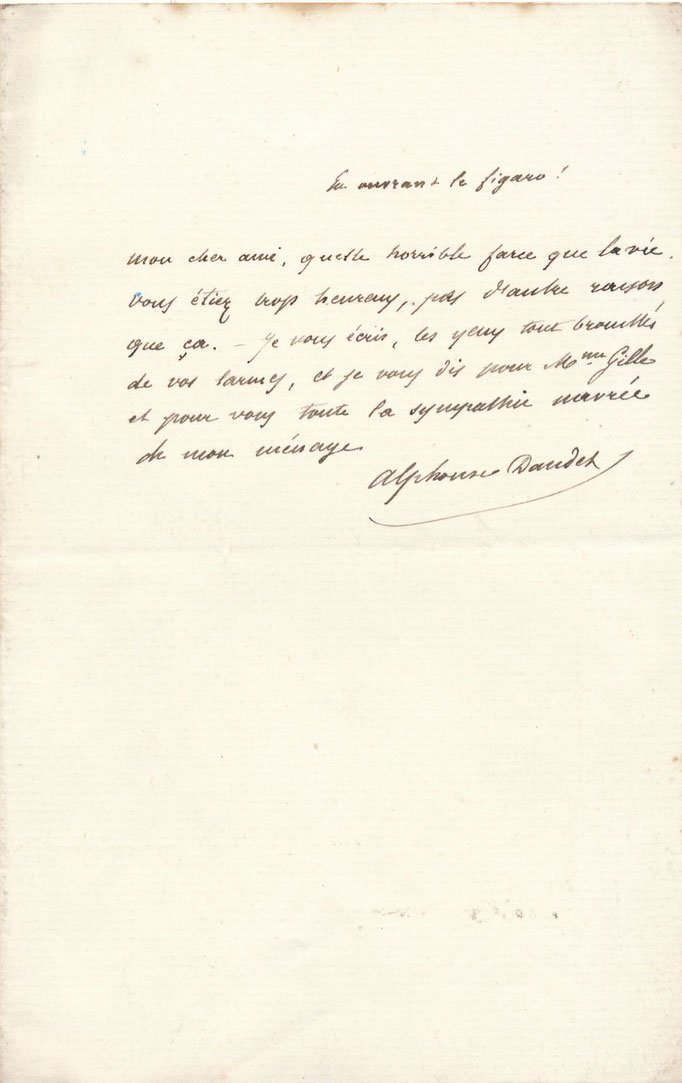 En ouvrant le figaro!
mon cher ami, quelle horrible farce que la vie.
vous étiez trop heureux, pas d'autre raison
que ça. — Je vous écris, les yeux tout brouillés
de vos larmes, et je vous dis pour Mme Gille
et pour vous toute la sympathie navrée
de mon ménage
Alphonse Daudet